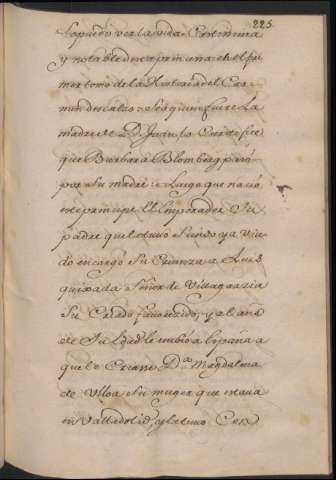 225
se puede ver la vida Contenida
y notable descripcion una en el pri
mer tomo de la Historia del Car
men descalzo = Sea quien fuere La
madre de Dn Juan lo Cierto fue
que Barbara Blomberg pasó
por Su madre = Luego que nacio
este principe El Emperador Su
padre que le tuvo Siendo ya Viu
do encargo Su Crianza a Luis
quixada Señor de Villagarzia
Su Criado favorezido, y al año
de Su Edad le embió a España a
que lo Criase Dª Magdalena
de Ulloa Su muger que estava
en Valladolid, y le tuvo Con